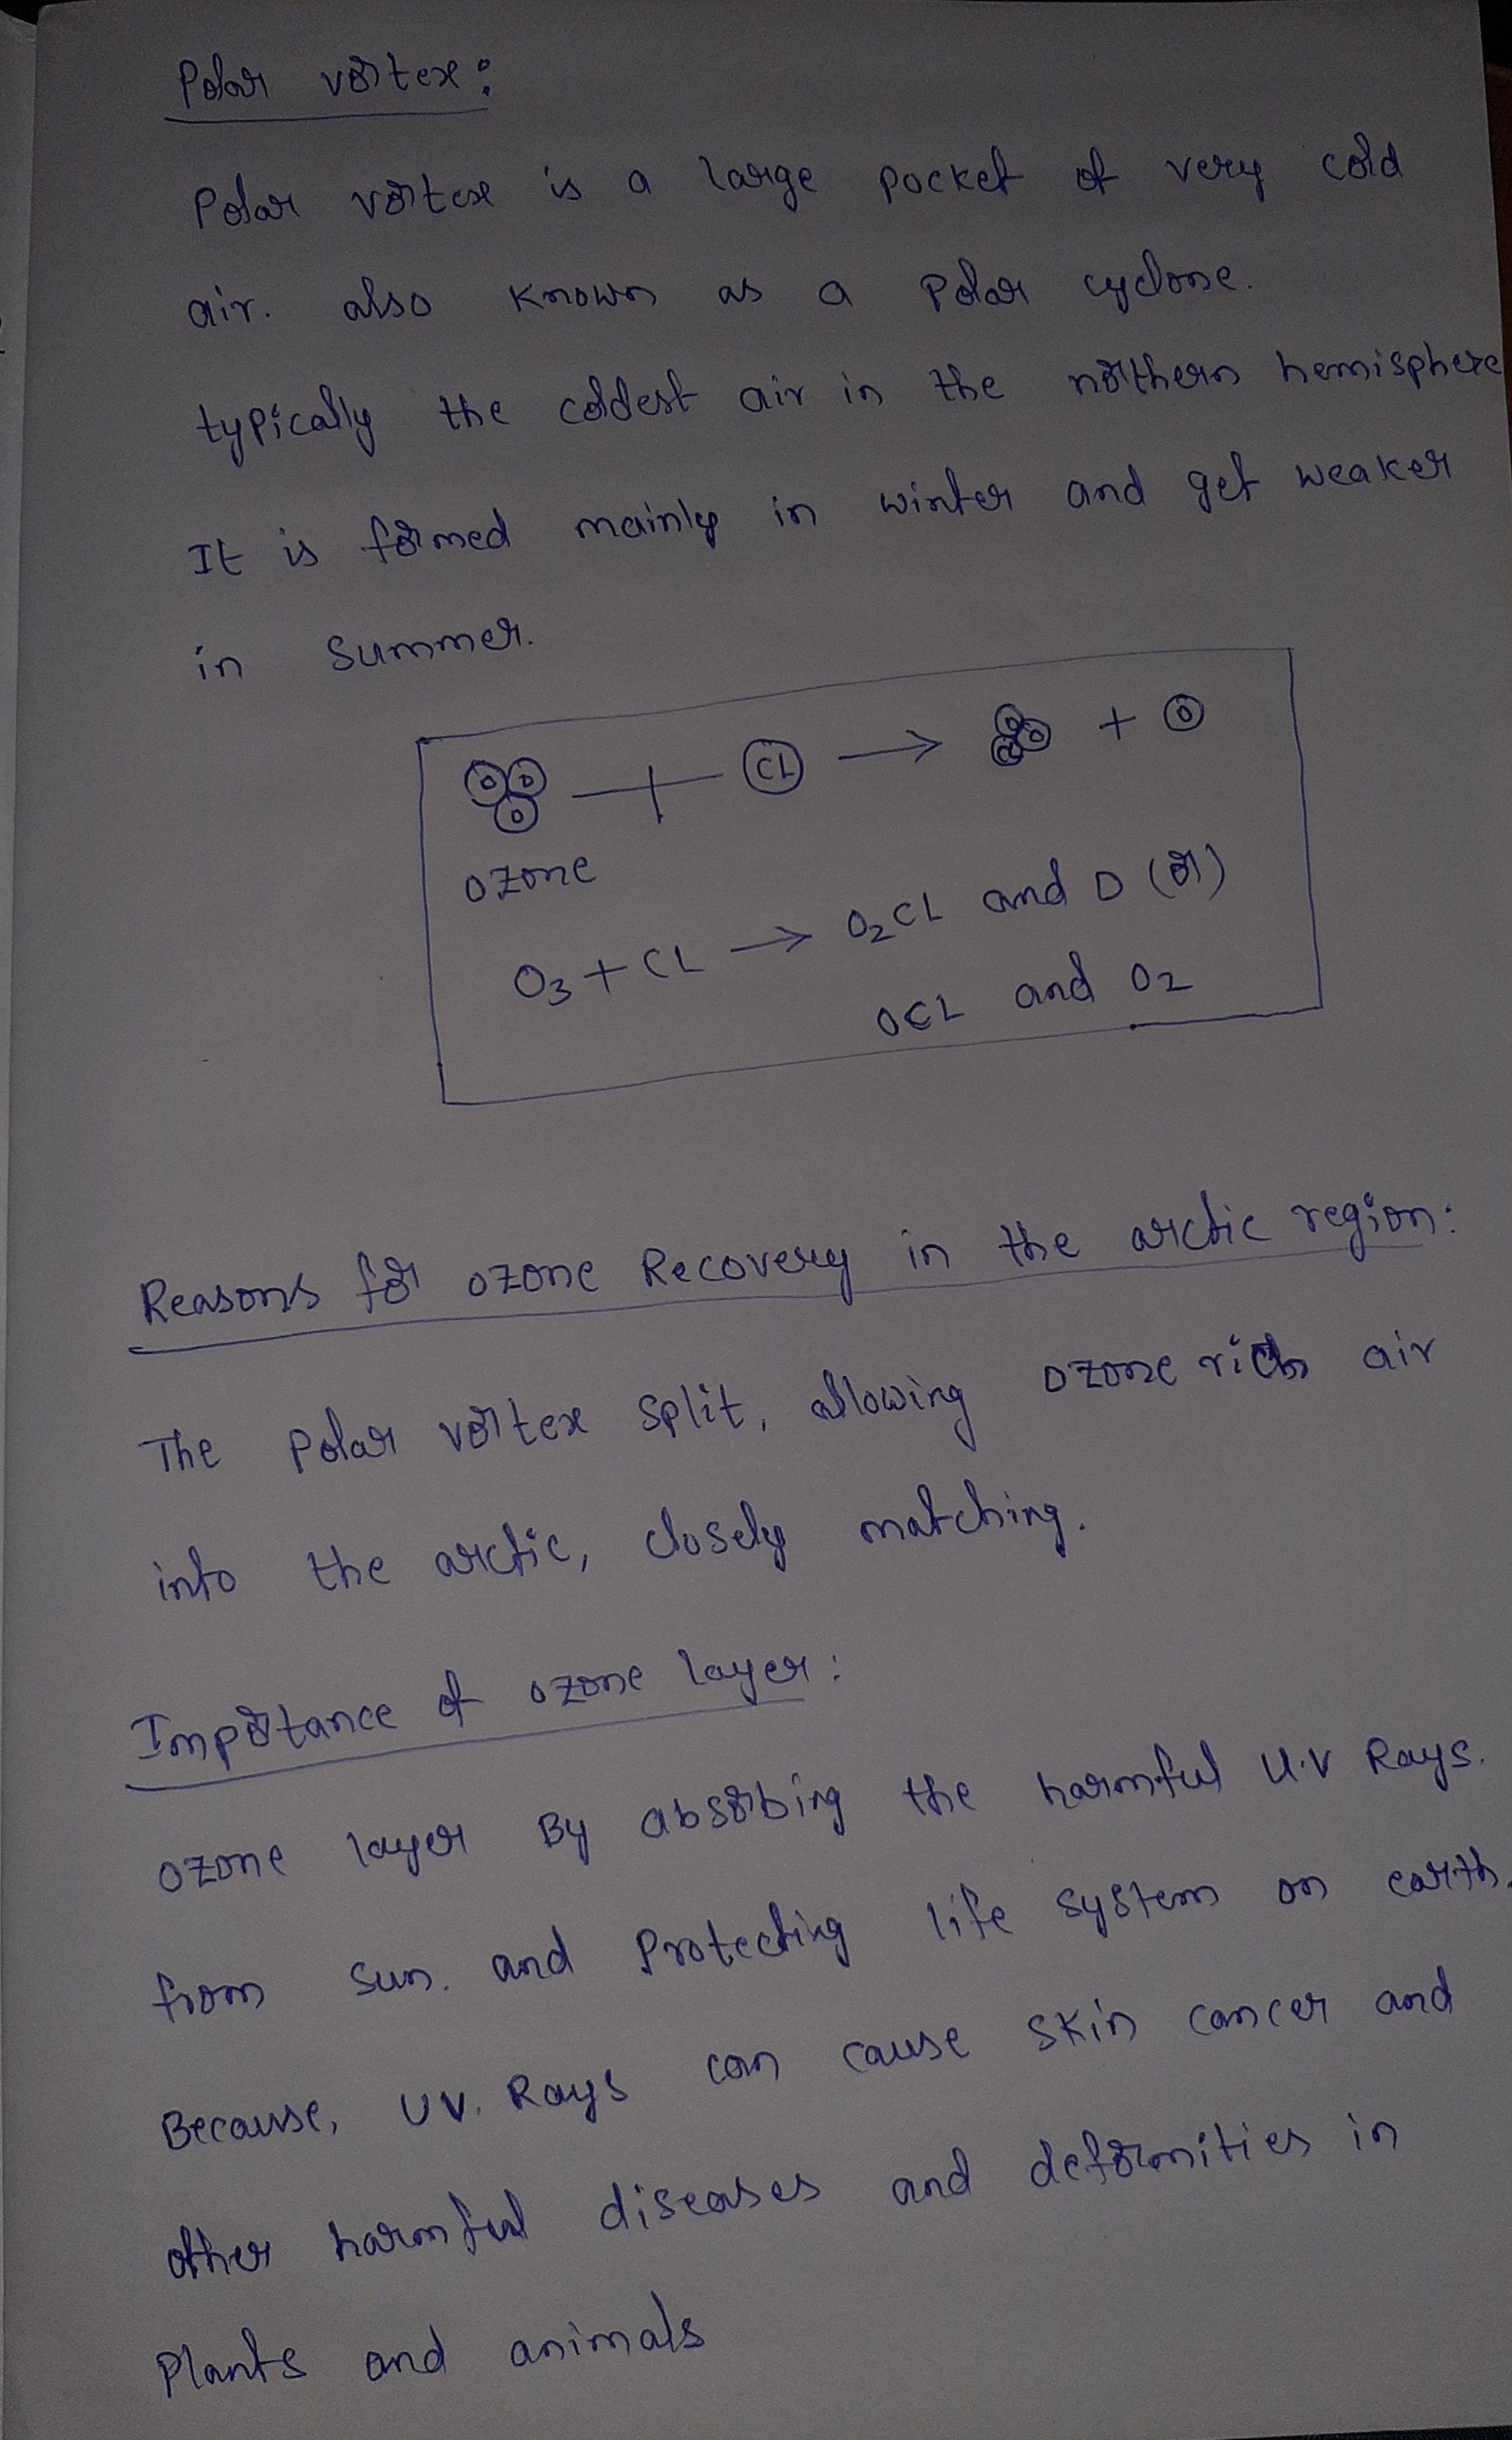 Polar vortex:
Polar vortex is a large pocket of very cold
air. also known as a Polar cyclone.
typically the coldest air in the northern hemisphere
It is formed mainly in winter and get weaker
in summer.
O O O + CL → O O CL + O
ozone
O₃ + CL → O₂CL and O (or)
OCL and O₂
Reasons for ozone Recovery in the arctic region:
The Polar vortex split, allowing ozone rich air
into the arctic, closely matching.
Importance of ozone layer:
ozone layer By absorbing the harmful U.V Rays.
from sun. and Protecting life system on earth.
Because, UV. Rays can cause skin cancer and
other harmful diseases and deformities in
Plants and animals